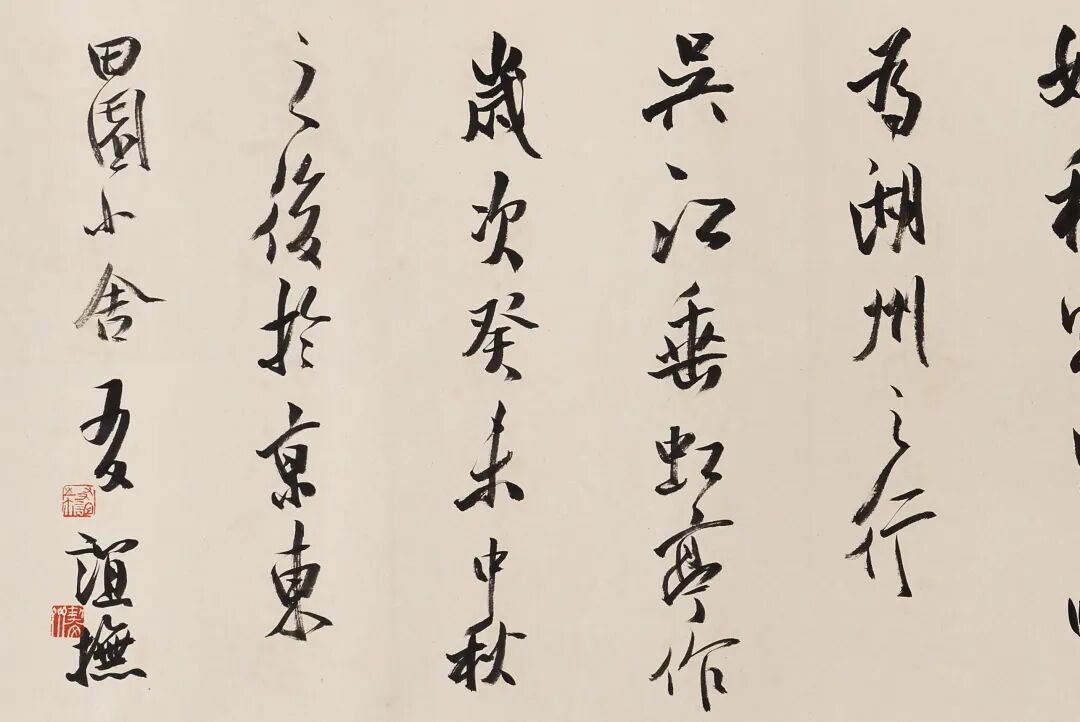 為湖州之行
吳江垂虹亭作
歲次癸未中秋
之後於京東
田園小舍友誼撫